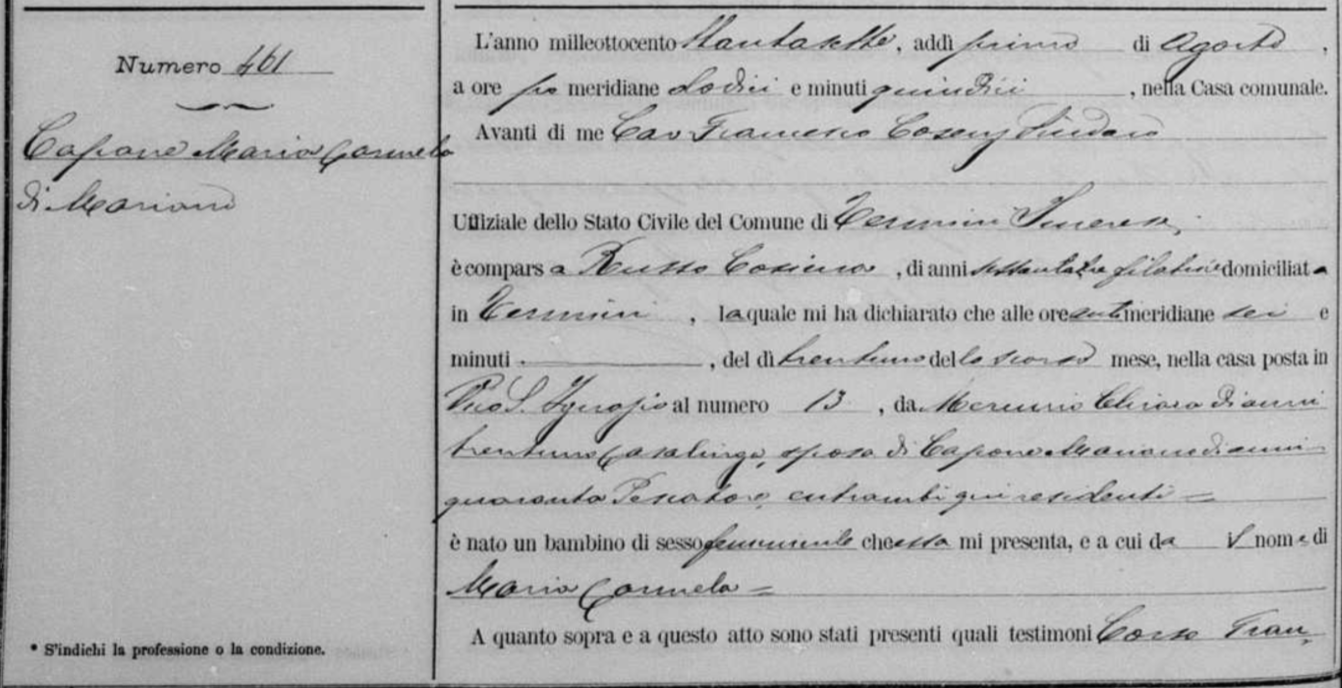 Numero 461
Capone Maria Carmela
di Mariano
* S'indichi la professione o la condizione.
L'anno milleottocento ottantasette, addì primo di Agosto,
a ore po meridiane dodici e minuti quindici, nella Casa comunale.
Avanti di me Cav Francesco Cosenz Sindaco
Uffiziale dello Stato Civile del Comune di Termini Imerese
è compars a Russo Cosima, di anni sessantatre filatrice domiciliata
in Termini, la quale mi ha dichiarato che alle ore anti meridiane sei e
minuti —, del dì trentuno dello scorso mese, nella casa posta in
Vico S. Ignazio al numero 13, da Mercurio Chiara di anni
trentuno Casalinga, sposa di Capone Mariano di anni
quaranta Pescatore, entrambi qui residenti =
è nato un bambino di sesso femminile che essa mi presenta, e a cui da il nome di
Maria Carmela =
A quanto sopra e a questo atto sono stati presenti quali testimoni Corso Fran-